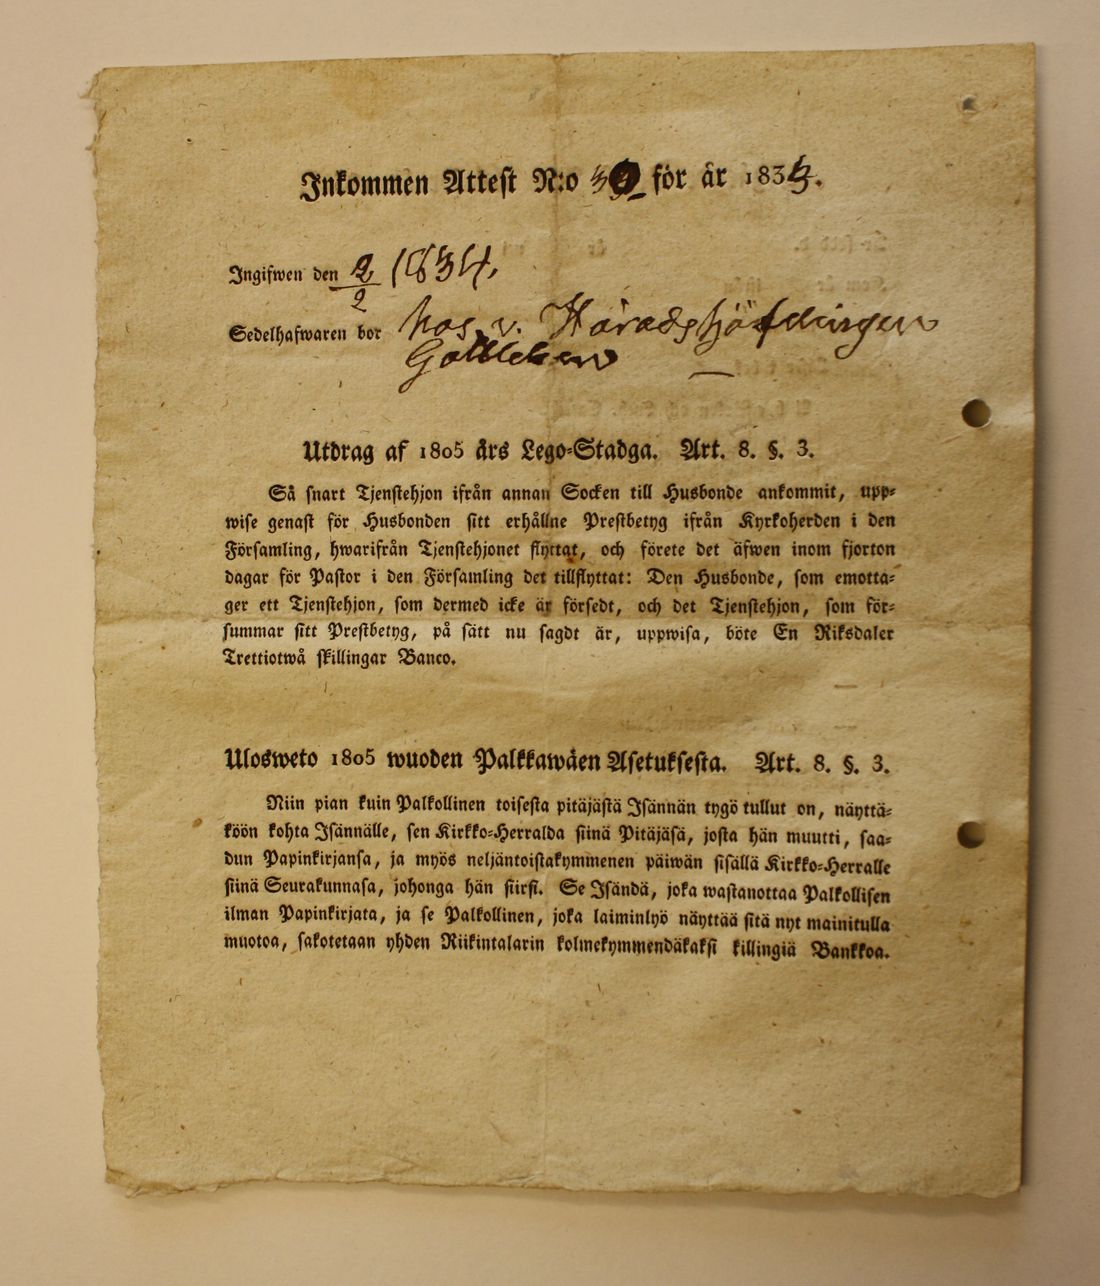 Inkommen Attest N:o för år 1834.
Ingifwen den 2/2 1834.
Sedelhafwaren bor hos v. Häradshöfdingen
Gottleben
Utdrag af 1805 års Lego-Stadga. Art. 8. §. 3.
Så snart Tjenstehjon ifrån annan Socken till Husbonde ankommit, upp-
wise genast för Husbonden sitt erhållne Prestbetyg ifrån Kyrkoherden i den
Församling, hwarifrån Tjenstehjonet flyttat, och förete det äfwen inom fjorton
dagar för Pastor i den Församling det tillflyttat: Den Husbonde, som emotta-
ger ett Tjenstehjon, som dermed icke är försedt, och det Tjenstehjon, som för-
summar sitt Prestbetyg, på sätt nu sagdt är, uppwisa, böte En Riksdaler
Trettiotwå skillingar Banco.
Ulosweto 1805 wuoden Palkkawäen Asetuksesta. Art. 8. §. 3.
Niin pian kuin Palkollinen toisesta pitäjästä Isännän tygö tullut on, näyttä-
köön kohta Isännälle, sen Kirkko-Herralda siinä Pitäjäsä, josta hän muutti, saa-
dun Papinkirjansa, ja myös neljäntoistakymmenen päiwän sisällä Kirkko-Herralle
siinä Seurakunnasa, johonga hän siirsi. Se Isändä, joka wastanottaa Palkollisen
ilman Papinkirjata, ja se Palkollinen, joka laiminlyö näyttää sitä nyt mainitulla
muotoa, sakotetaan yhden Riikintalarin kolmekymmendäkaksi killingiä Bankkoa.